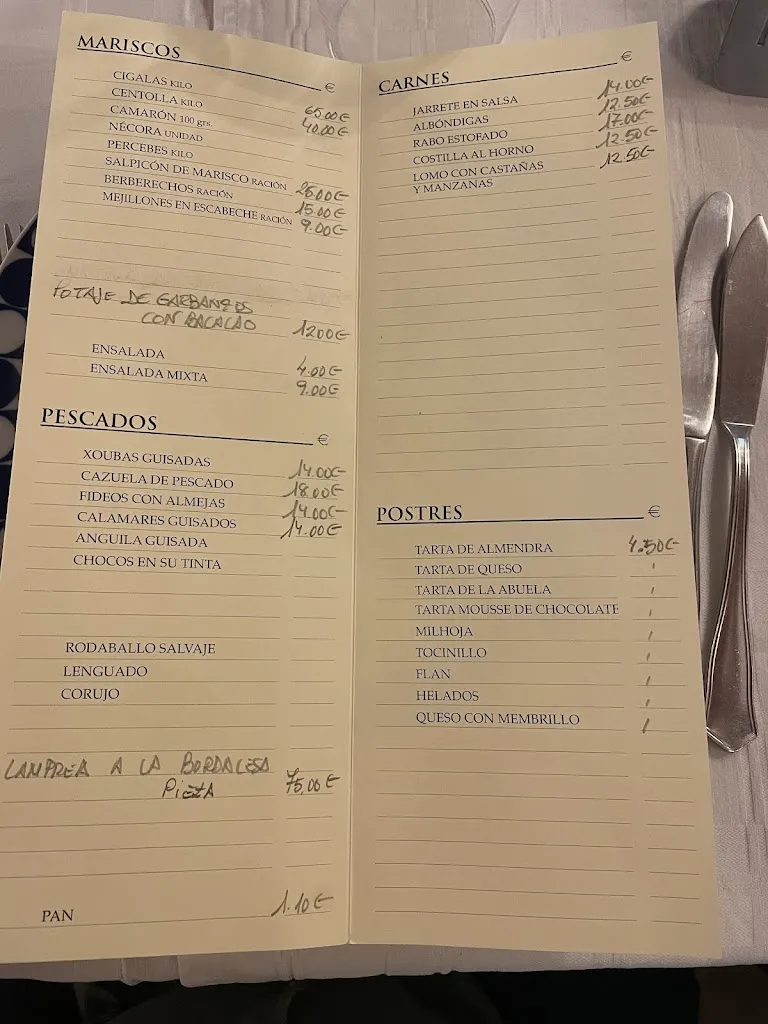 MARISCOS €
CIGALAS KILO 65.00€
CENTOLLA KILO 40.00€
CAMARÓN 100 grs.
NÉCORA UNIDAD
PERCEBES KILO
SALPICÓN DE MARISCO RACIÓN 25.00€
BERBERECHOS RACIÓN 15.00€
MEJILLONES EN ESCABECHE RACIÓN 9.00€
POTAJE DE GARBANZOS
CON BACALAO 12.00€
ENSALADA 4.00€
ENSALADA MIXTA 9.00€
PESCADOS €
XOUBAS GUISADAS 14.00€
CAZUELA DE PESCADO 18.00€
FIDEOS CON ALMEJAS 14.00€
CALAMARES GUISADOS 14.00€
ANGUILA GUISADA
CHOCOS EN SU TINTA
RODABALLO SALVAJE
LENGUADO
CORUJO
LAMPREA A LA BORDALESA
PIEZA 75,00€
PAN 1.10€
CARNES €
JARRETE EN SALSA 14.00€
ALBÓNDIGAS 12.50€
RABO ESTOFADO 17.00€
COSTILLA AL HORNO 12.50€
LOMO CON CASTAÑAS 12.50€
Y MANZANAS
POSTRES €
TARTA DE ALMENDRA 4.50€
TARTA DE QUESO
TARTA DE LA ABUELA
TARTA MOUSSE DE CHOCOLATE
MILHOJA
TOCINILLO
FLAN
HELADOS
QUESO CON MEMBRILLO